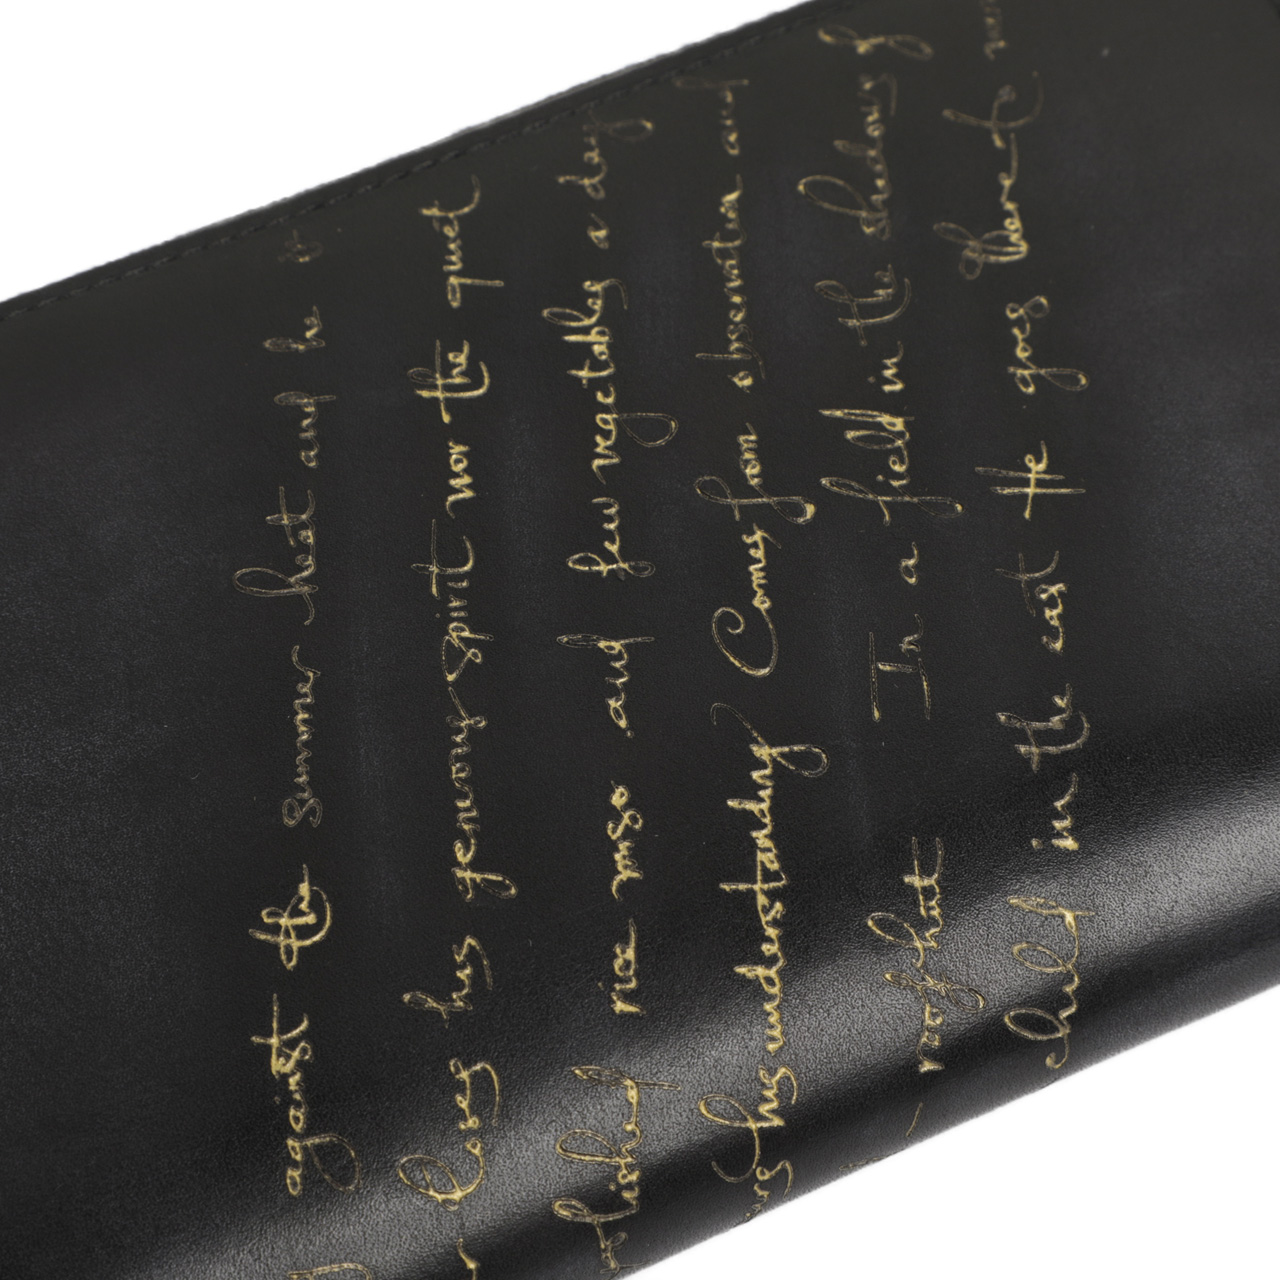 against the Summer heat and he
loses his generous spirit nor the quiet
rice miso and few vegetables a day
his understanding Comes from observation and
In a field in the shadows of
child in the east He goes there to